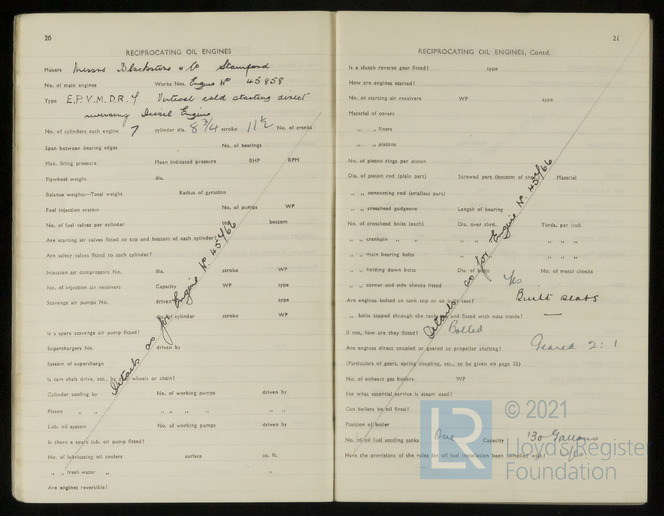 20
RECIPROCATING OIL ENGINES
Makers Messrs Blackstone & Co Stamford
No. of main engines Works Nos. Engine No 45958
Type E.P.V.M.D.R. 7 Vertical cold starting direct
reversing Diesel Engine
No. of cylinders each engine 7 cylinder dia. 8 3/4 stroke 11 1/2 No. of cranks
Span between bearing edges No. of bearings
Max. firing pressure Mean indicated pressure BHP RPM
Flywheel weight dia.
Balance weights—Total weight Radius of gyration
Fuel injection system No. of pumps WP
No. of fuel valves per cylinder top bottom
Are starting air valves fitted to top and bottom of each cylinder
Are safety valves fitted to each cylinder?
Injection air compressors No. dia. stroke WP
No. of injection air receivers Capacity WP type
Scavenge air pumps No. driven type
dia. of cylinder stroke WP
Is a spare scavenge air pump fitted?
Superchargers No. driven by
System of supercharge
Is cam shaft drive, etc., by wheels or chain?
Cylinder cooling by No. of working pumps driven by
Piston „ „ „ „ „ „ „
Lub. oil system No. of working pumps driven by
Is there a spare lub. oil pump fitted?
No. of lubricating oil coolers surface sq. ft.
„ „ fresh water „ „
Are engines reversible?
Details as for Engine No. 45966
21
RECIPROCATING OIL ENGINES, Contd.
Is a clutch reverse gear fitted? type
How are engines started?
No. of starting air receivers WP type
Material of covers
„ „ liners
„ „ pistons
No. of piston rings per piston
Dia. of piston rod (plain part) Screwed part (bottom of thread) Material
„ „ connecting rod (smallest part)
„ „ crosshead gudgeons Length of bearing
No. of crosshead bolts (each) Dia. over thrd. Thrds. per inch
„ „ crankpin „ „ „ „ „ „
„ „ main bearing bolts „ „ „
„ „ holding down bolts Dia. of bolts No. of metal chocks
„ „ corner and side chocks fitted Yes
Are engines bolted to tank top or to built seat? Built seats
„ bolts tapped through the tank and fitted with nuts inside? —
If not, how are they fitted? Bolted
Are engines direct coupled or geared to propeller shafting? Geared 2:1
(Particulars of gears, spring coupling, etc., to be given on page 22)
No. of exhaust gas boilers WP
For what essential service is steam used?
Can boilers be oil fired?
Position of boiler
No. of oil fuel settling tanks One Capacity 130 Gallons
Have the provisions of the rules for oil fuel installation been complied with? Yes
Details as for Engine No. 45966
© 2021
Lloyd's Register
Foundation
LR